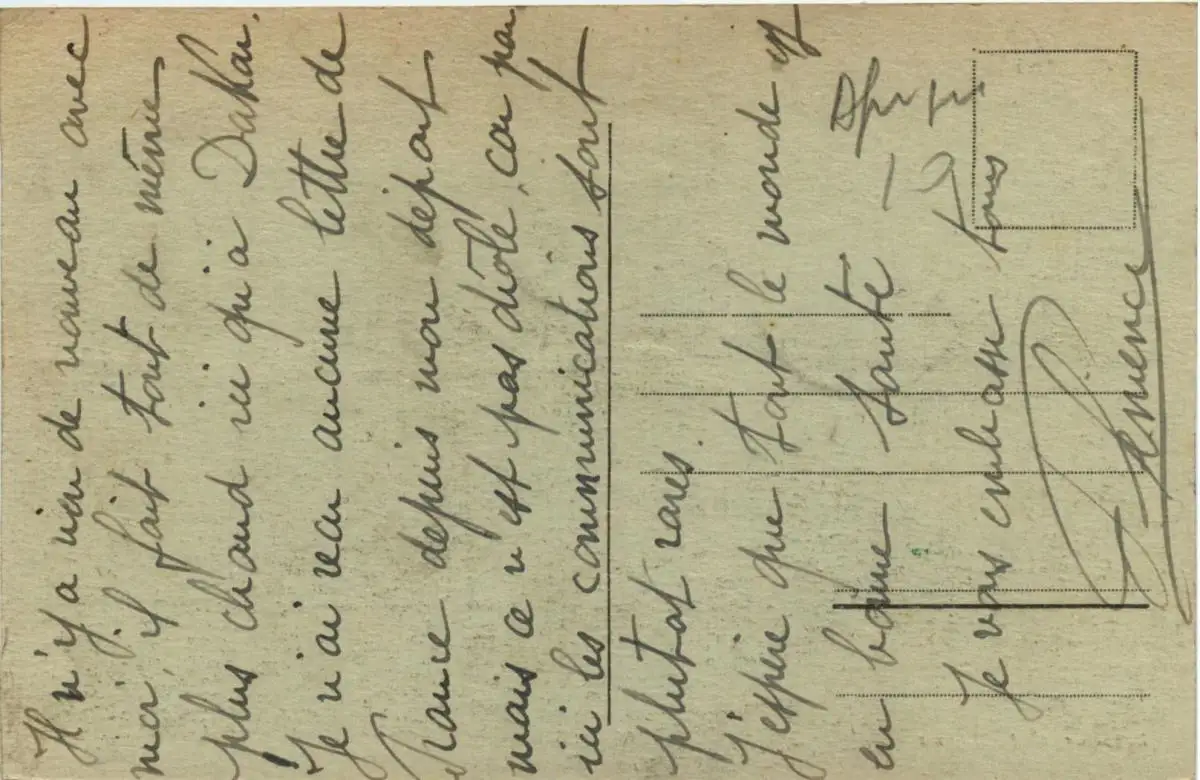 Il n'y a rien de nouveau avec
moi, il fait tout de même
plus chaud ici qu'à Dakar.
Je n'ai recu aucune lettre de
France depuis mon départ
mais ce n'est pas drôle, car par
ici les communications sont
plutot rares.
J'espère que tout le monde est
en bonne santé
Je vous embrasse tous